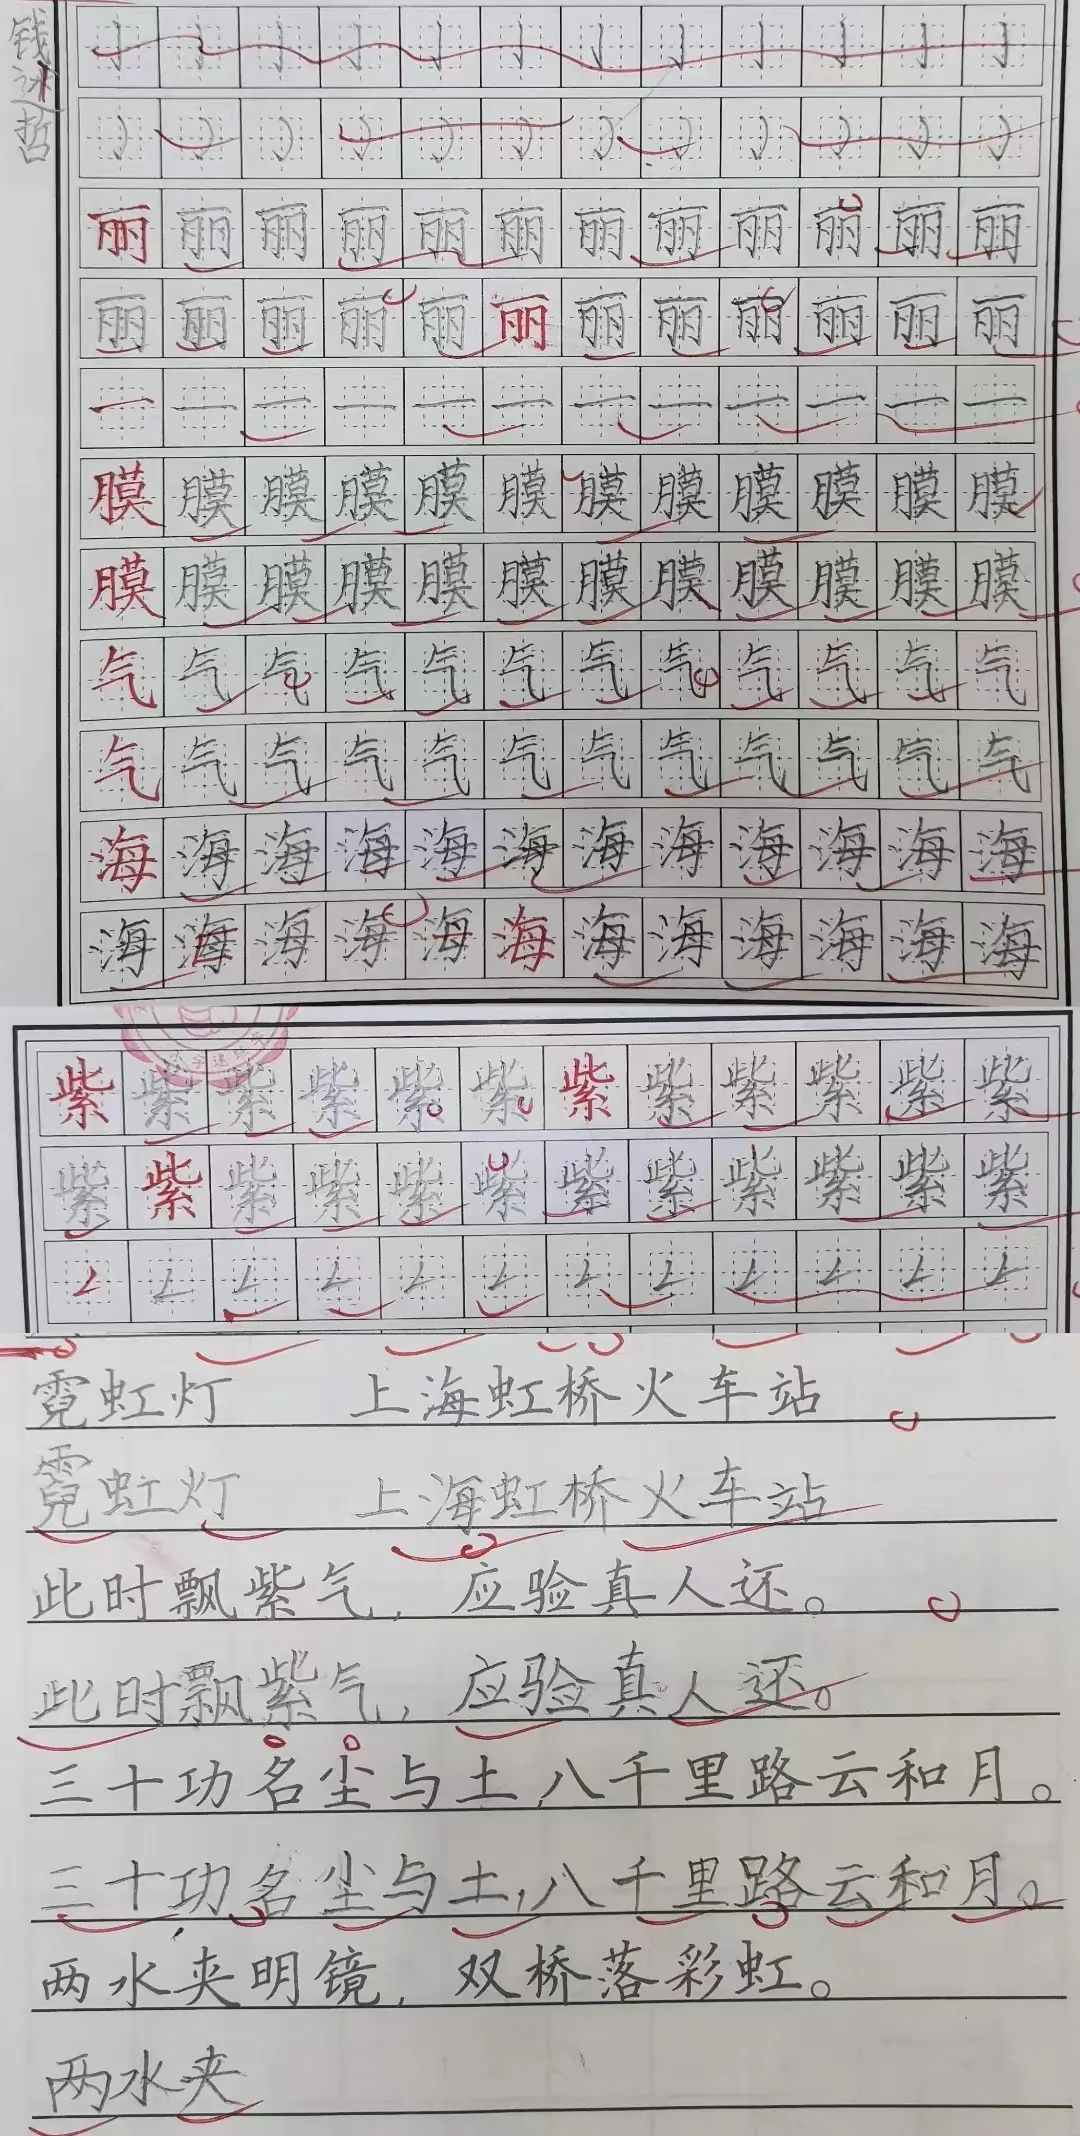 钱泳哲
丽丽丽丽丽丽丽丽丽丽丽丽
丽丽丽丽丽丽丽丽丽丽丽丽
一一一一一一一一一一一一
膜膜膜膜膜膜膜膜膜膜膜膜
膜膜膜膜膜膜膜膜膜膜膜膜
气气气气气气气气气气气气
气气气气气气气气气气气气
海海海海海海海海海海海海
海海海海海海海海海海海海
紫紫紫紫紫紫紫紫紫紫紫紫
紫紫紫紫紫紫紫紫紫紫紫紫
霓虹灯 上海虹桥火车站
霓虹灯 上海虹桥火车站
此时飘紫气,应验真人还。
此时飘紫气,应验真人还。
三十功名尘与土,八千里路云和月。
三十功名尘与土,八千里路云和月。
两水夹明镜,双桥落彩虹。
两水夹